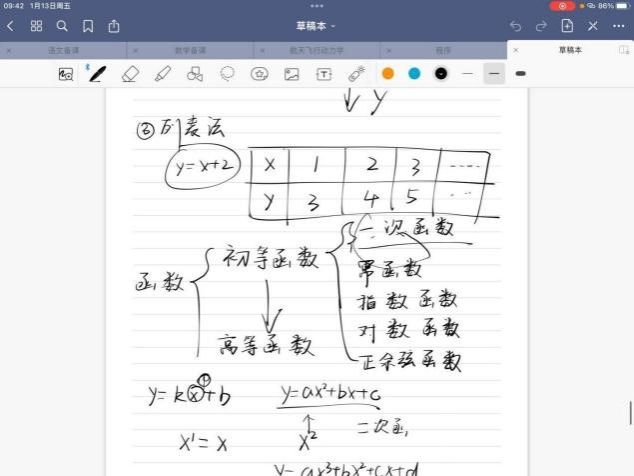 09:42 1月13日周五
86%
草稿本
语文备课
数学备课
航天飞行动力学
程序
草稿本
y
③列表法
y=x+2
x 1 2 3 ····
y 3 4 5 ···
函数
初等函数
高等函数
一次函数
幂函数
指数函数
对数函数
正余弦函数
y=kx+b
①
y=ax²+bx+c
x¹=x
x²
二次函
y=ax³+bx²+cx+d